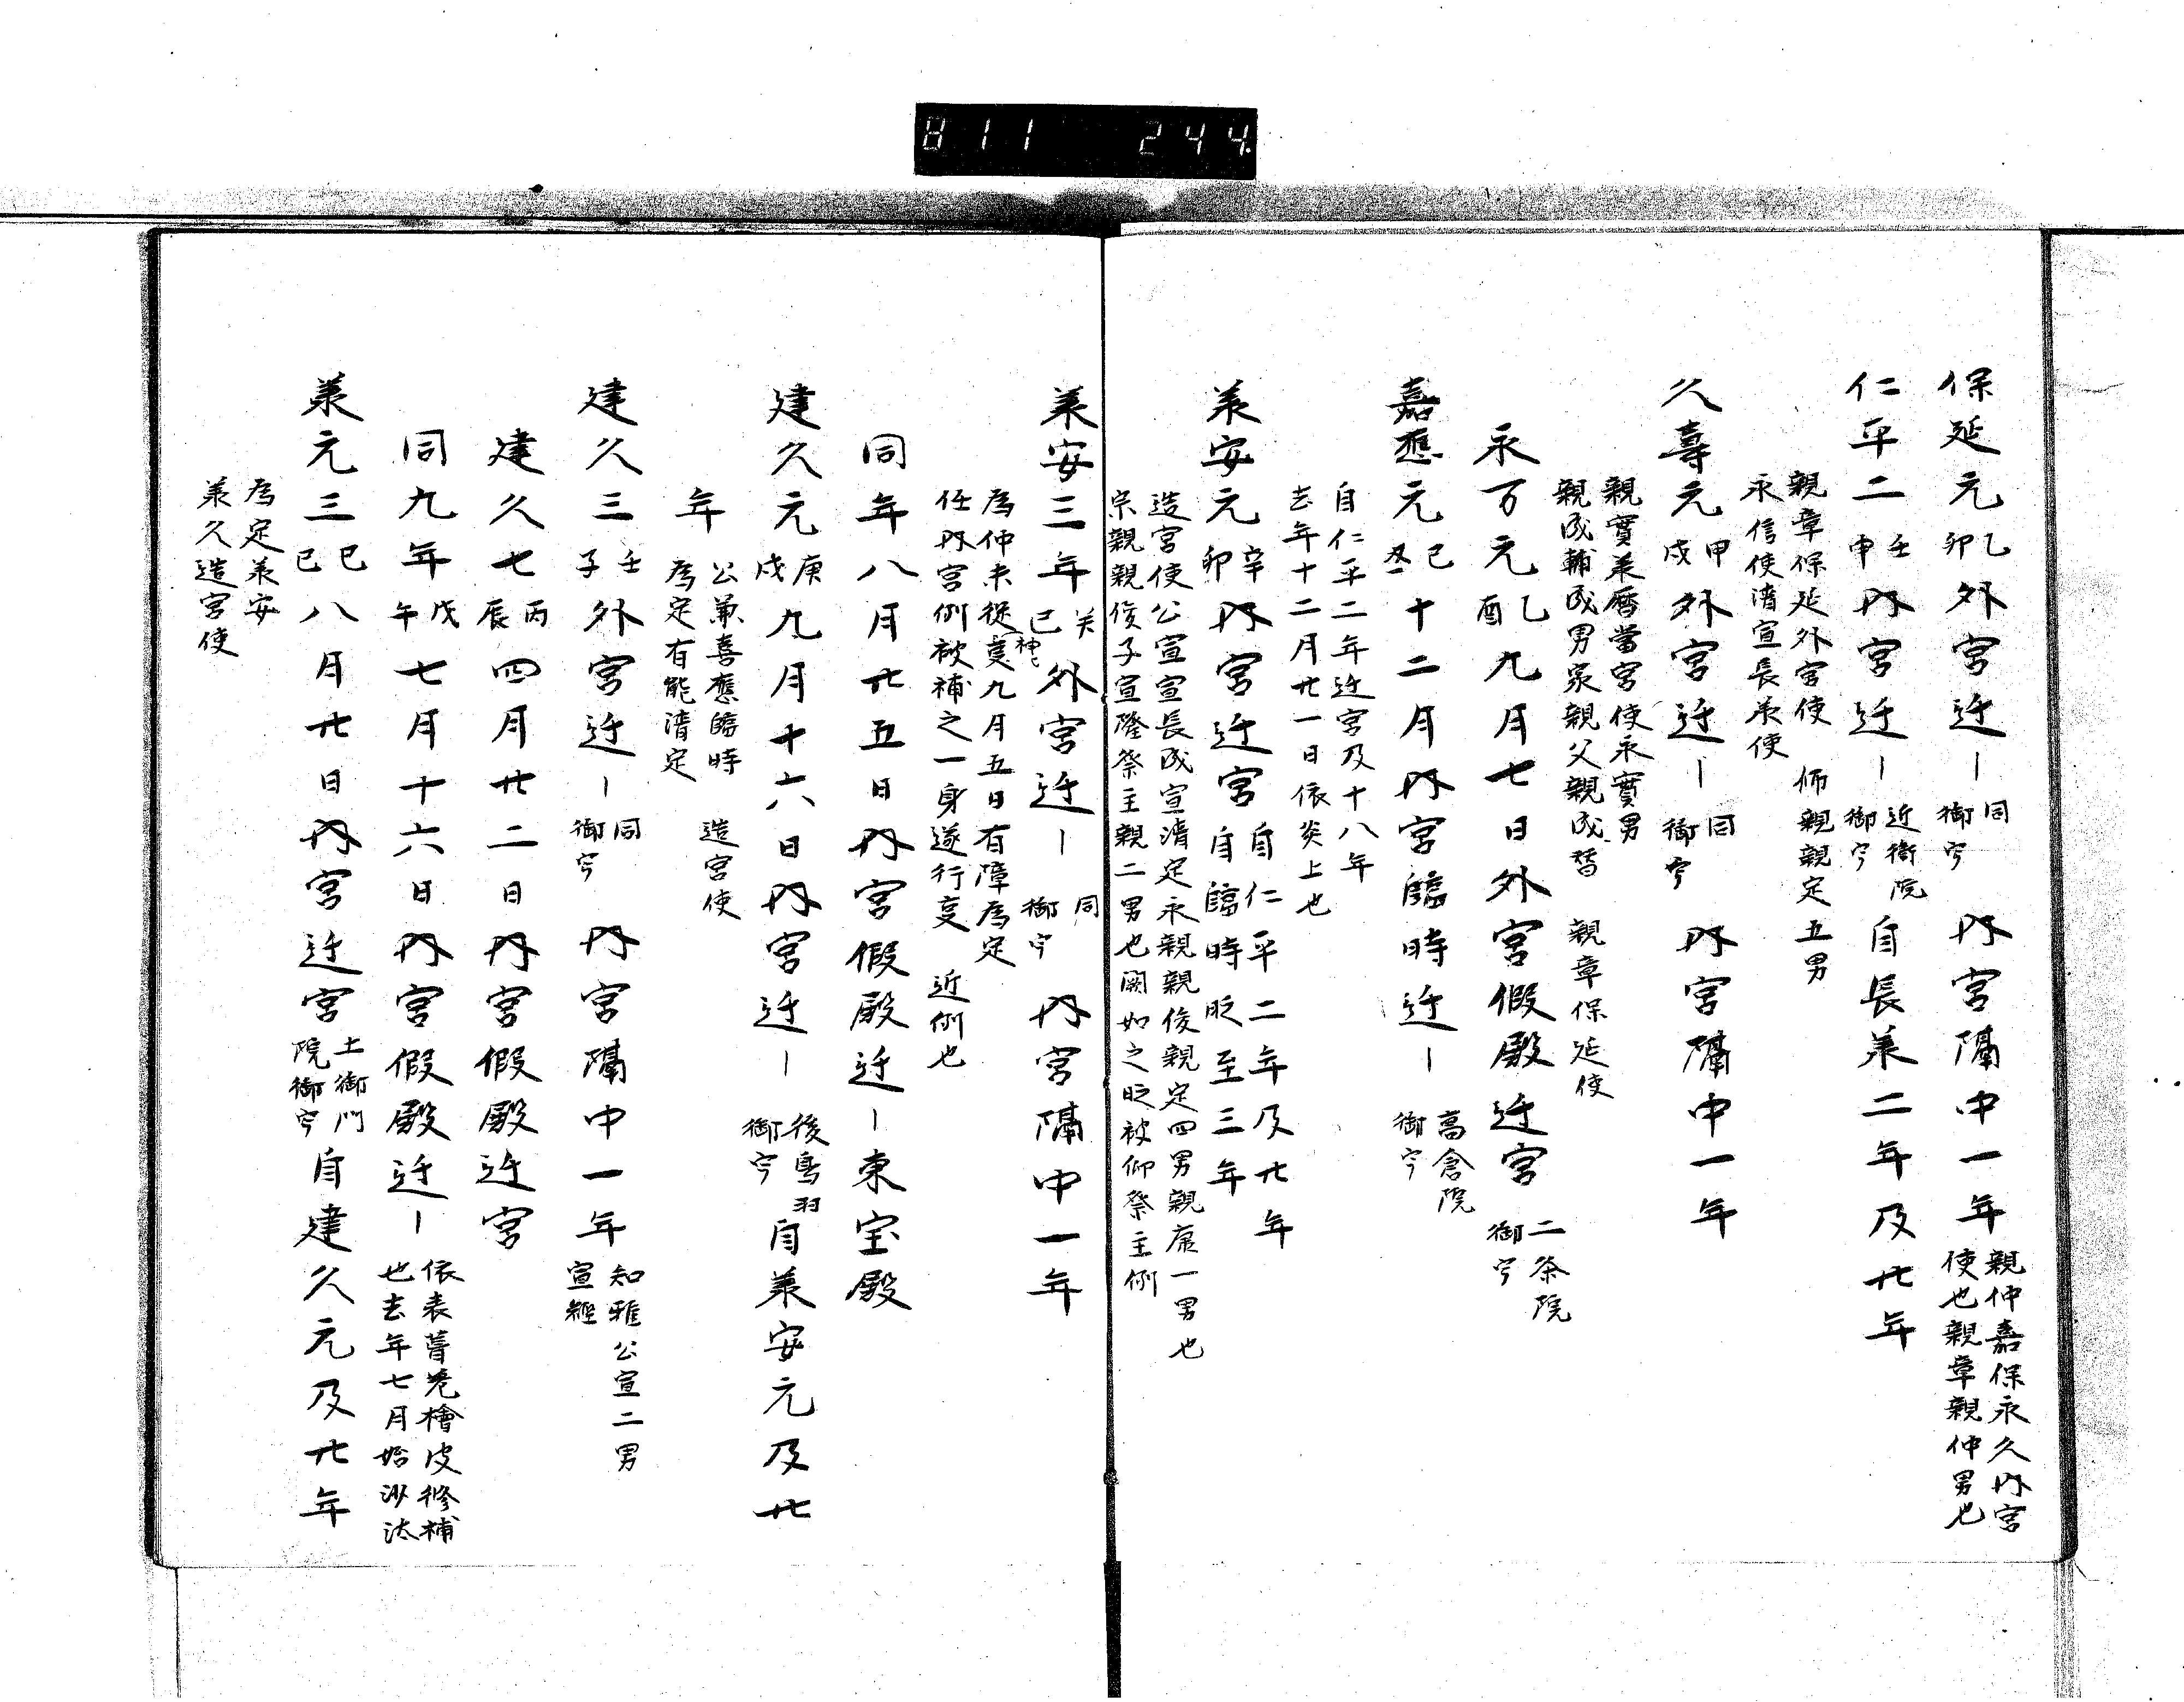 811 244
保延元乙卯外宮迁ー同御宇 内宮隔中一年親仲嘉保永久内宮使也親章親仲男也
仁平二壬申内宮迁ー近衛院御宇自長兼二年及廿年
親章保延外宮使 師親親定五男
永信使清宣長兼使
久寿元甲戌外宮迁ー同御宇 内宮隔中一年
親實兼暦當宮使永實男
親成輔成男泉親父親成聟 親章保延使
永万元乙酉九月七日外宮假殿迁宮二条院御宇
嘉應元己丑十二月内宮臨時迁ー高倉院御宇
自仁平二年迁宮及十八年
去年十二月廿一日依炎上也
兼安元辛卯内宮迁宮自仁平二年及廿年自臨時眨至三年
造宮使公宣宣長成宣清定永親親俊親定四男親康一男也
宗親親俊子宣隆祭主親二男也闕如之眨被仰祭主例
兼安三年癸巳外宮迁ー同御宇 内宮隔中一年
為仲未從神叓九月五日有障為定
任内宮例被補之一身遂行叓 近例也
同年八月廿五日内宮假殿迁ー東宝殿
建久元庚戌九月十六日内宮迁ー後鳥羽御宇自兼安元及廿
年 公兼喜應臨時 造宮使
為定有能清定
建久三壬子外宮迁ー同御宇 内宮隔中一年知雅公宣二男宣經
建久七丙辰四月廿二日内宮假殿迁宮
同九年戊午七月十六日内宮假殿迁ー依表葺萱檜皮修補也去年七月始沙汰
兼元三己巳八月廿日内宮迁宮土御門院御宇自建久元及廿年
為定兼安
兼久造宮使